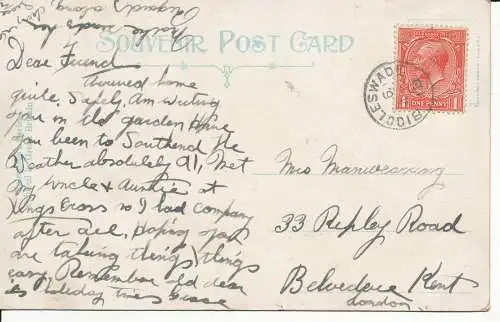 SOUVENIR POST CARD
Dear Friend
Arrived home
quite Safely, Am writing
you in the garden. Have
you been to Southend the
Weather absolutely A1, Met
my Uncle & Auntie at
Kings Cross so I had company
after all, Hoping you
are taking things things
easy. Remember old dear
its holiday times
ONE PENNY
BIGGLESWADE
Mrs Manwaring
33 Ripley Road
Belvedere Kent
London